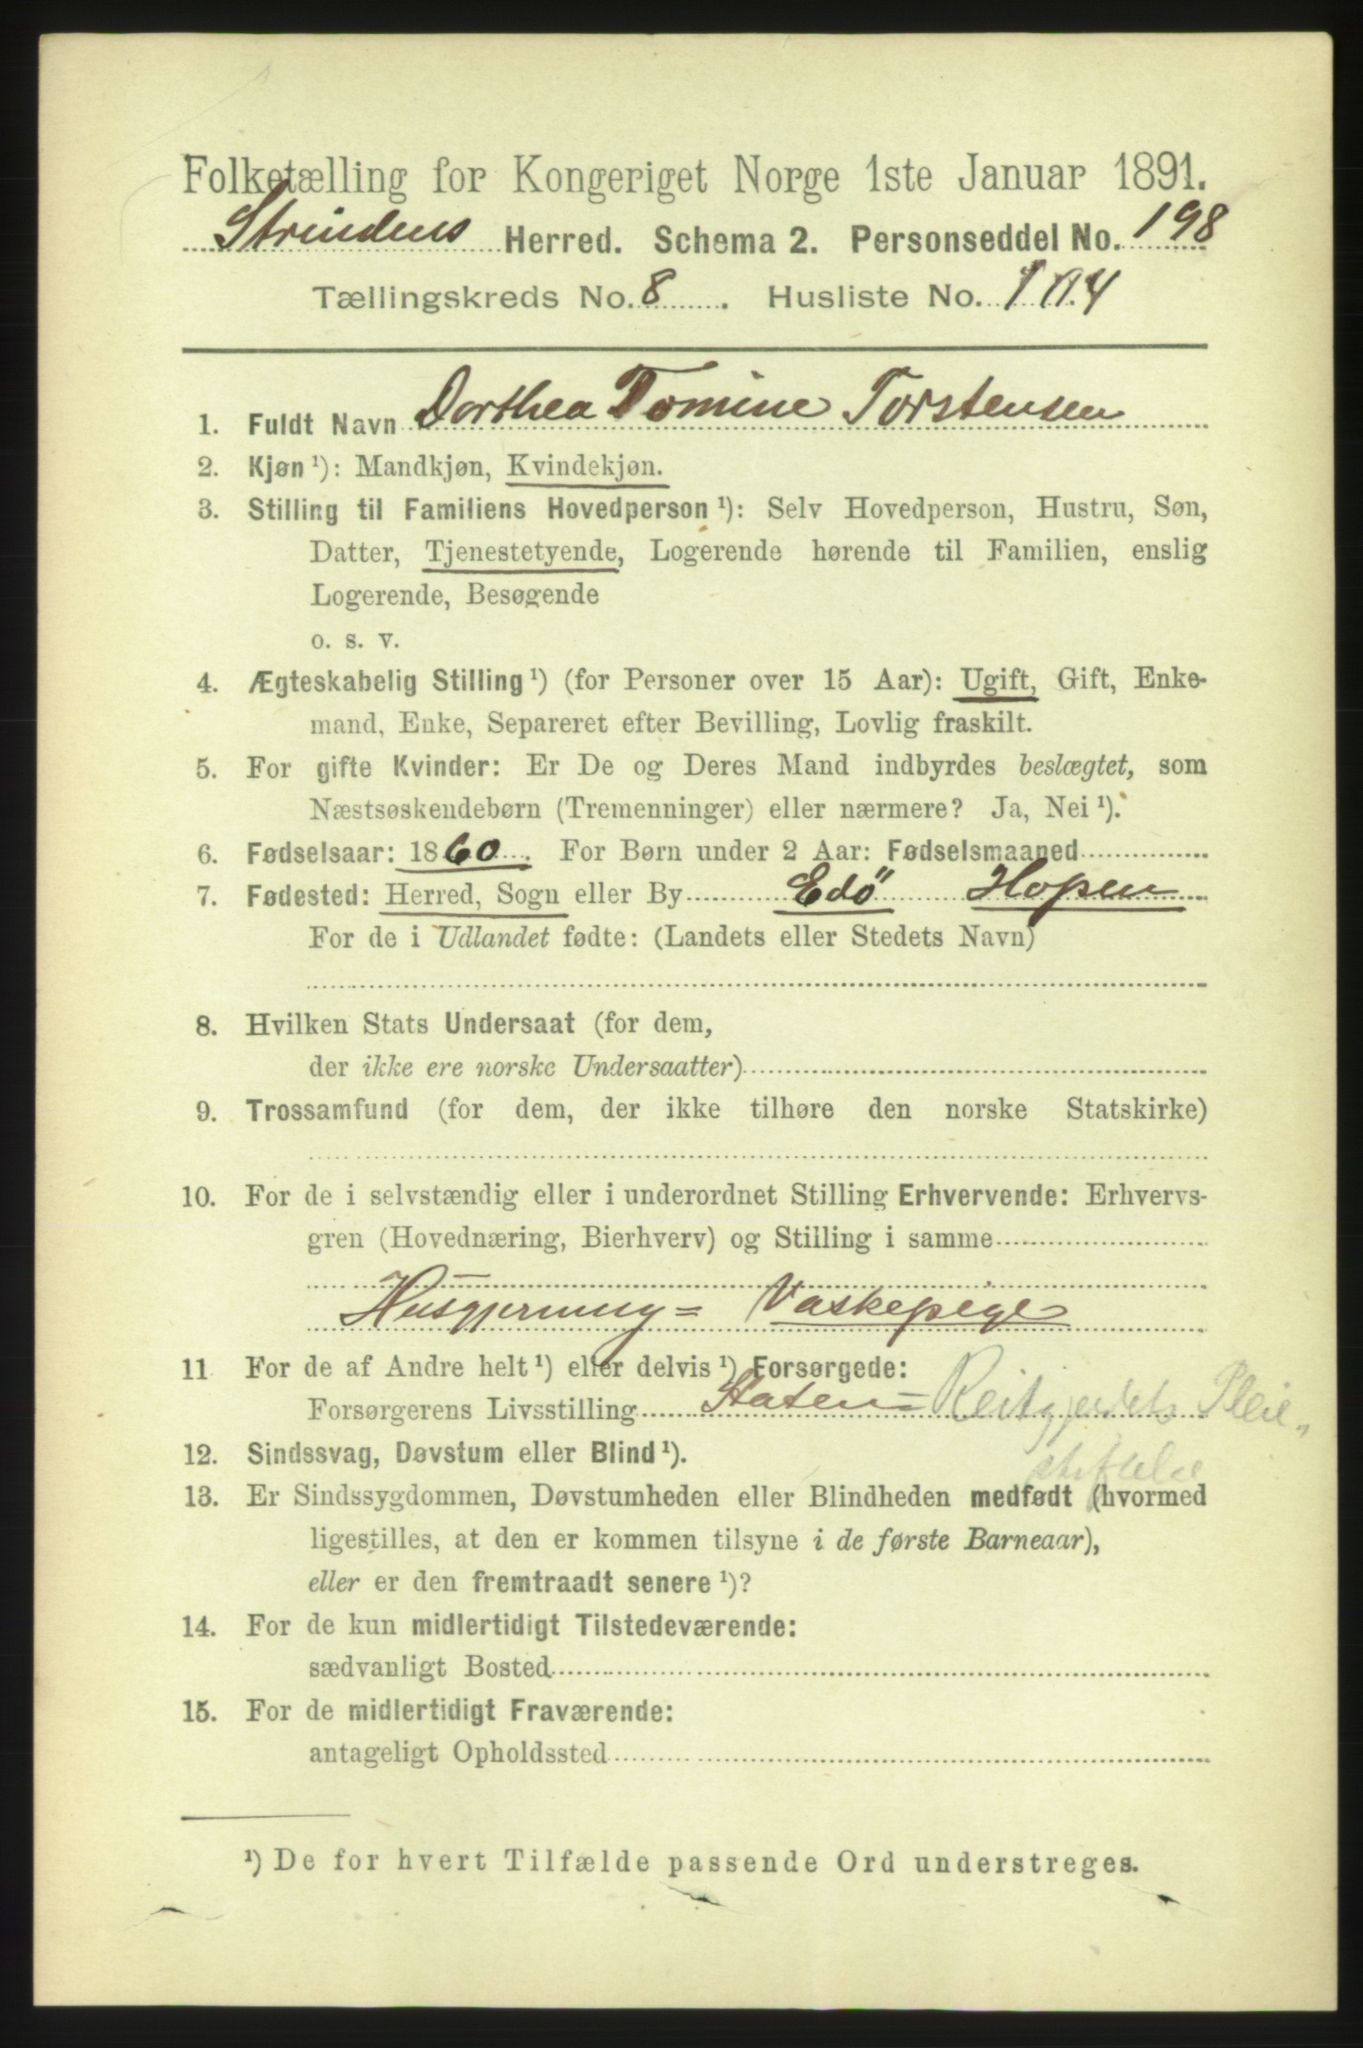 Folketælling for Kongeriget Norge 1ste Januar 1891.
Strindens Herred. Schema 2. Personseddel No. 198
Tællingskreds No. 8. Husliste No. 1 n.4
1. Fuldt Navn Dorthea Tomine Torstensen
2. Kjøn ¹): Mandkjøn, Kvindekjøn.
3. Stilling til Familiens Hovedperson ¹): Selv Hovedperson, Hustru, Søn,
Datter, Tjenestetyende, Logerende hørende til Familien, enslig
Logerende, Besøgende
o. s. v.
4. Ægteskabelig Stilling ¹) (for Personer over 15 Aar): Ugift, Gift, Enke-
mand, Enke, Separeret efter Bevilling, Lovlig fraskilt.
5. For gifte Kvinder: Er De og Deres Mand indbyrdes beslægtet, som
Næstsøskendebørn (Tremenninger) eller nærmere? Ja, Nei ¹).
6. Fødselsaar: 1860. For Børn under 2 Aar: Fødselsmaaned
7. Fødested: Herred, Sogn eller By Edö Hopen
For de i Udlandet fødte: (Landets eller Stedets Navn)
8. Hvilken Stats Undersaat (for dem,
der ikke ere norske Undersaatter)
9. Trossamfund (for dem, der ikke tilhøre den norske Statskirke)
10. For de i selvstændig eller i underordnet Stilling Erhvervende: Erhvervs-
gren (Hovednæring, Bierhverv) og Stilling i samme
Husgjerning = Vaskepige
11 For de af Andre helt ¹) eller delvis ¹) Forsørgede:
Forsørgerens Livsstilling Staten = Reitgjerdets Pleie-
stiftelse
12. Sindssvag, Døvstum eller Blind ¹).
13. Er Sindssygdommen, Døvstumheden eller Blindheden medfødt (hvormed
ligestilles, at den er kommen tilsyne i de første Barneaar),
eller er den fremtraadt senere ¹)?
14. For de kun midlertidigt Tilstedeværende:
sædvanligt Bosted
15. For de midlertidigt Fraværende:
antageligt Opholdssted
¹) De for hvert Tilfælde passende Ord understreges.